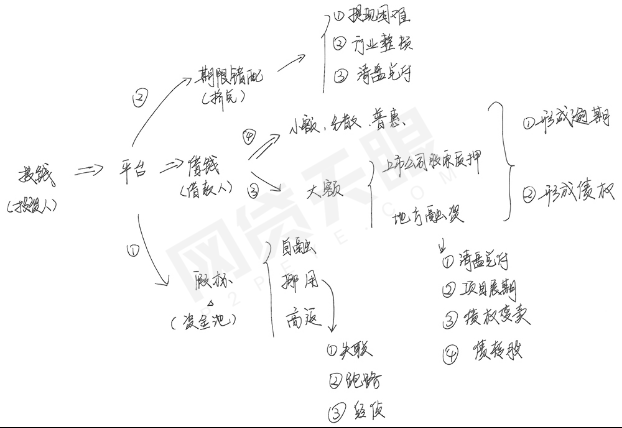 ① 提现困难
② 行业整损
③ 清盘兑付
②
期限错配
(拆包)
小额、分散、普惠、
④
① 形成逾期
投钱
(投资人)
平台
借钱
(借款人)
③
大额
上市公司股票质押
地方融资
② 形成债权
①
股标
(资金池)
自融
挪用
高返
① 失联
② 跑路
③ 经侦
① 清盘兑付
② 项目展期
③ 债权变卖
④ 债转股
网贷天眼
P2PEYE.COM